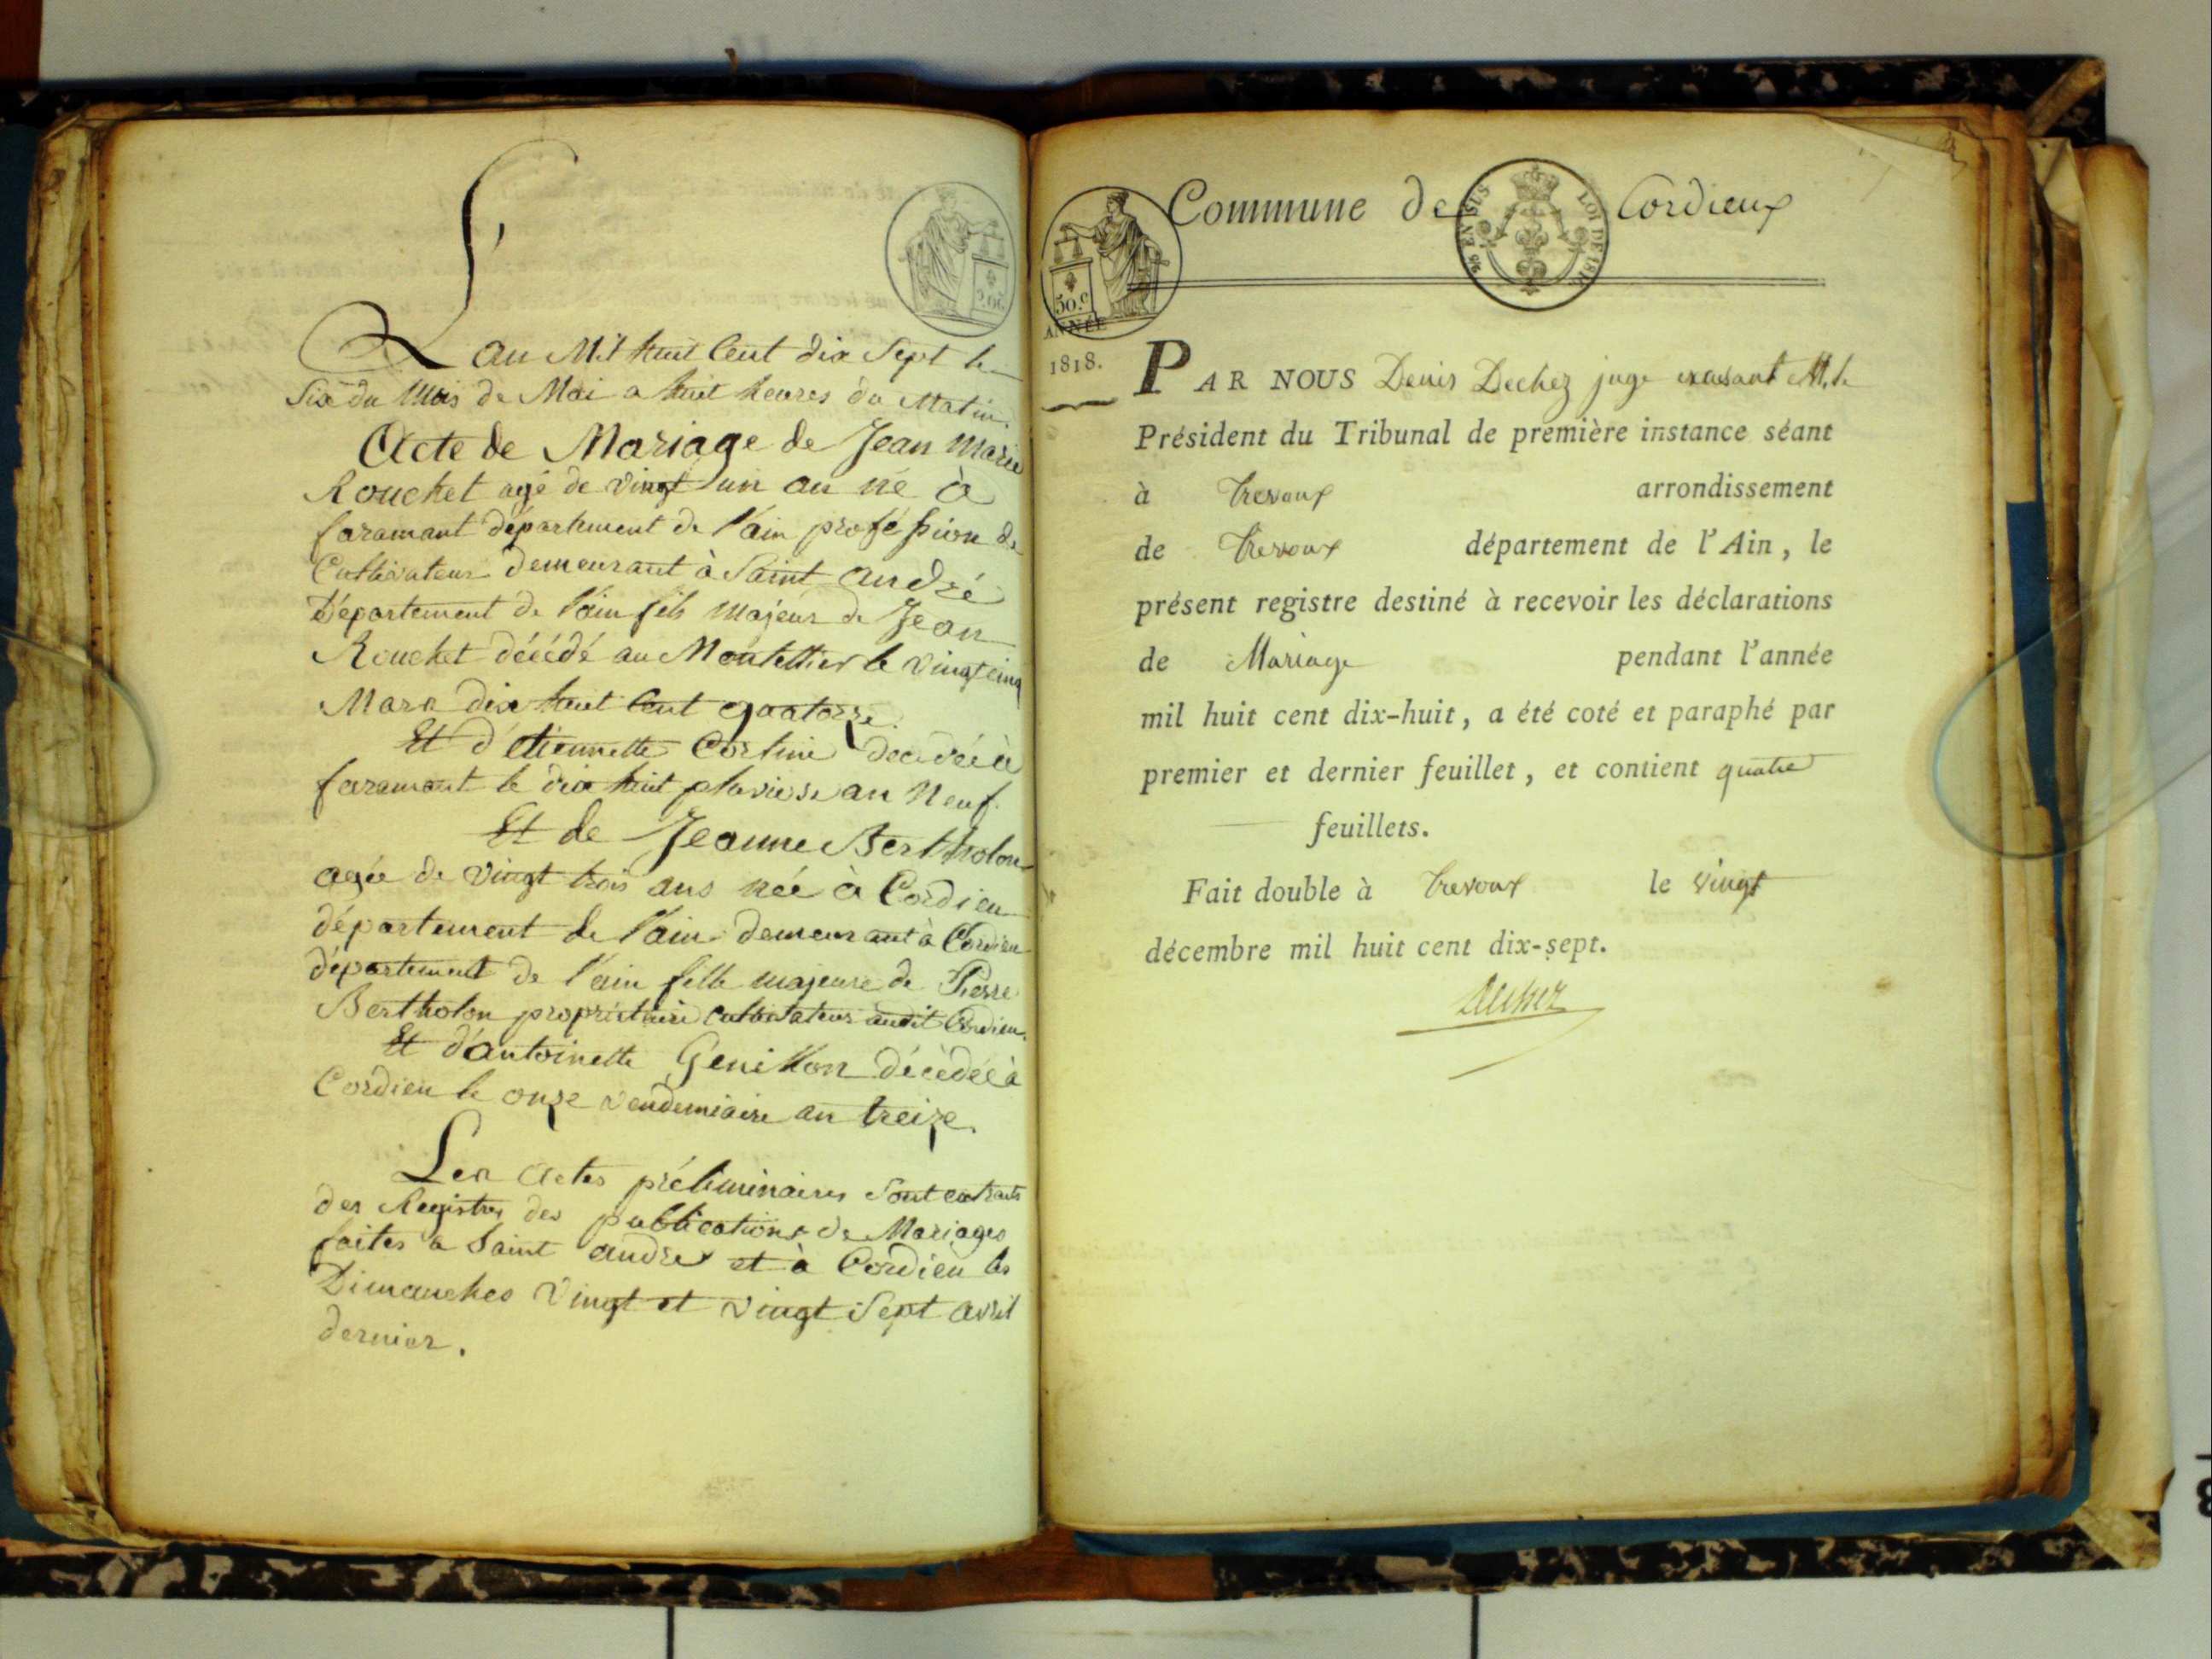 L'an Mil huit Cent dix Sept le
Six du Mois de Mai a huit heures du Matin.
Acte de Mariage de Jean Marie
Rouchet agé de vingt un an né à
faramant département de l'ain profession de
Cultivateur demeurant à Saint andré
Département de l'ain fils majeur de Jean
Rouchet décédé au Montellier le vingt cinq
Mars dix huit Cent quatorze.
Et d'etiennette décédée à
faramant le dix huit pluviose an Neuf.
Et de Jeanne Bertholon
agée de vingt trois ans née à Cordieu
département de l'ain demeurant à Cordieu
département de l'ain fille majeure de Pierre
Bertholon propriétaire Cultivateur audit Cordieu.
Et d'antoinette Genillon décédée à
Cordieu le onze vendemiaire an treize.
Les actes préliminaires Sont extraits
des Registres des publications de Mariages
faites a Saint andre et à Cordieu les
Dimanches vingt et vingt Sept avril
dernier.
Commune de Cordieux
EN SUS
LOI DE
50.c
ANNÉE
1818.
PAR NOUS Denis Dechez juge M. le
Président du Tribunal de première instance séant
à Trevoux arrondissement
de Trevoux département de l'Ain, le
présent registre destiné à recevoir les déclarations
de Mariage pendant l'année
mil huit cent dix-huit, a été coté et paraphé par
premier et dernier feuillet, et contient quatre
feuillets.
Fait double à Trevoux le vingt
décembre mil huit cent dix-sept.
Dechez